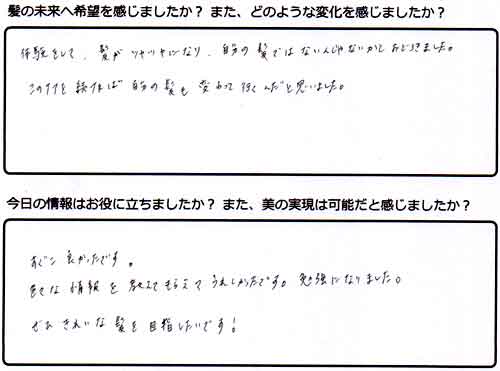 髪の未来へ希望を感じましたか？ また、どのような変化を感じましたか？
体験をして、髪がツヤツヤになり、自分の髪ではないんじゃないかと おどろきました。
このケアを続ければ 自分の髪も 変わって行くんだと思いました。
今日の情報はお役に立ちましたか？ また、美の実現は可能だと感じましたか？
すごく良かったです。
色々な情報を教えてもらえてうれしかったです。勉強になりました。
ぜひきれいな髪を目指したいです!